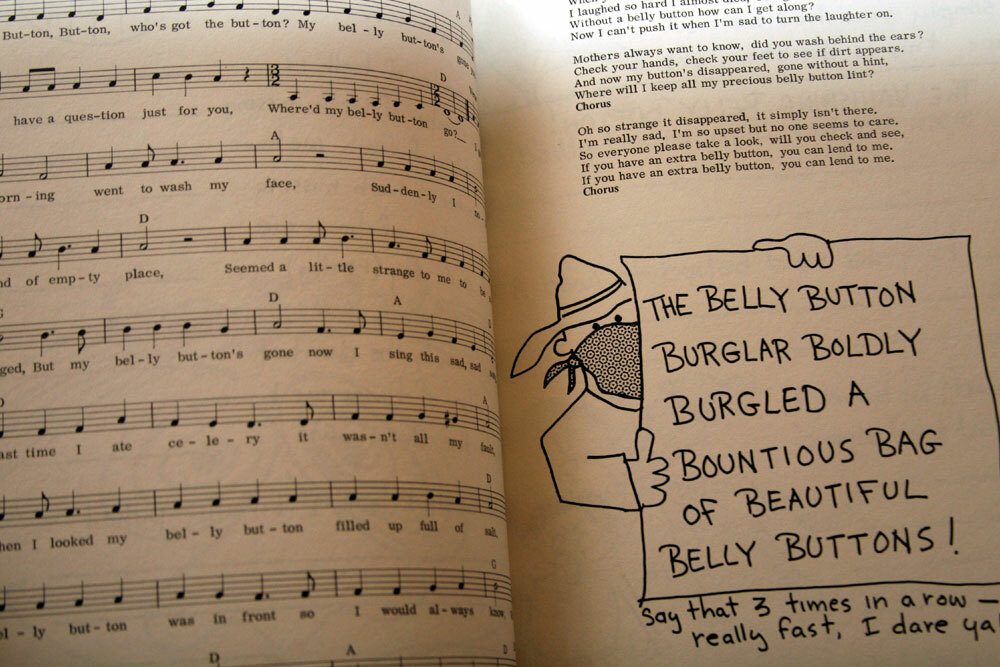 A A
But-ton, But-ton, who's got the but-ton? My bel-ly but-ton's gone
D
have a ques-tion just for you, Where'd my bel-ly but-ton go?
A
went to wash my face, Sud-den-ly I
D
of emp-ty place, Seemed a lit-tle strange to me to be
G D A D
But my bel-ly but-ton's gone now I sing this sad, sad
D A
time I ate ce-le-ry it was-n't all my fault,
D
I looked my bel-ly but-ton filled up full of salt,
G
but-ton was in front so I would al-ways know,
D A D
I laughed so hard I almost died,
Without a belly button how can I get along?
Now I can't push it when I'm sad to turn the laughter on.
Mothers always want to know, did you wash behind the ears?
Check your hands, check your feet to see if dirt appears.
And now my button's disappeared, gone without a hint,
Where will I keep all my precious belly button lint?
Chorus
Oh so strange it disappeared, it simply isn't there.
I'm really sad, I'm so upset but no one seems to care.
So everyone please take a look, will you check and see,
If you have an extra belly button, you can lend to me.
If you have an extra belly button, you can lend to me.
Chorus
THE BELLY BUTTON
BURGLAR BOLDLY
BURGLED A
BOUNTIOUS BAG
OF BEAUTIFUL
BELLY BUTTONS!
Say that 3 times in a row —
really fast, I dare ya